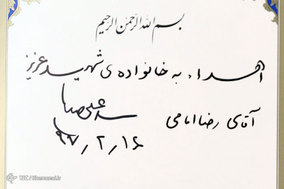 بسم الله الرحمن الرحیم
اهداء به خانواده‌ی شهید عزیز
آقای رضا امامی
سید علی
۹۷٫۲٫۱۶